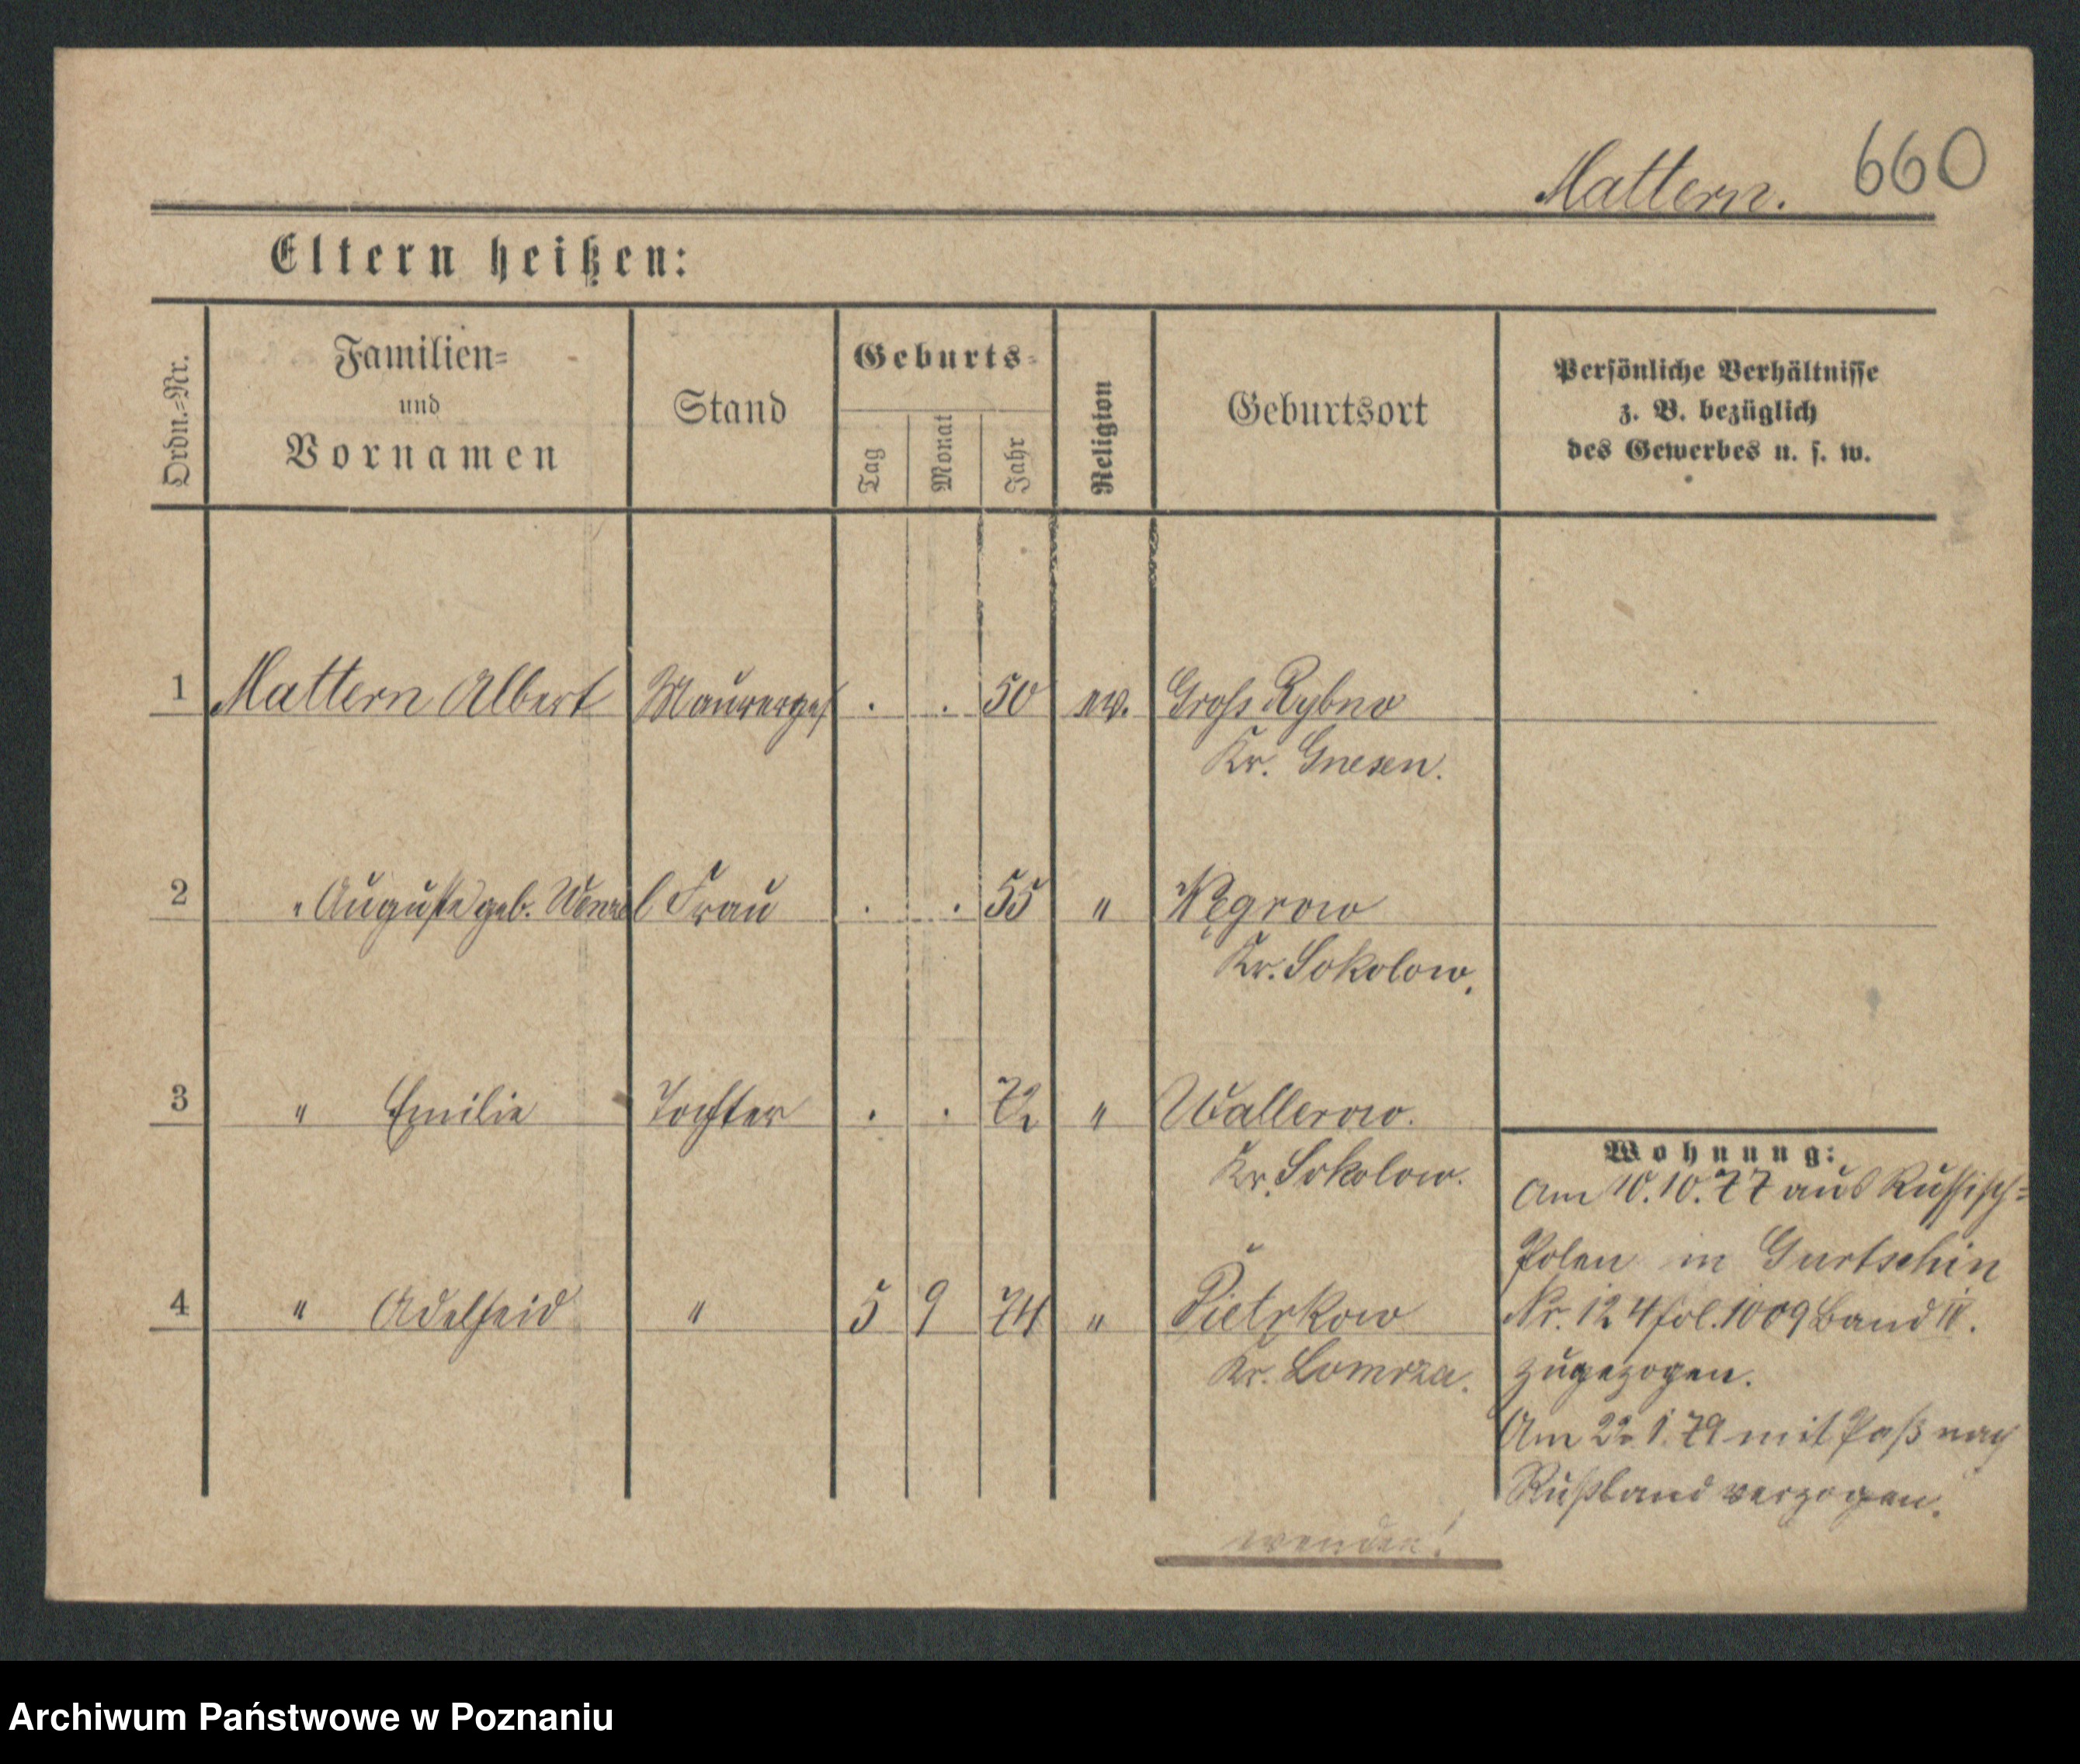 Mattern. 660
Eltern heißen:
Ordn.-Nr.
Familien-
und
Vornamen
Stand
Geburts-
Tag
Monat
Jahr
Religion
Geburtsort
Persönliche Verhältnisse
z. B. bezüglich
des Gewerbes u. s. w.
1 Mattern Albert Maurerges . . 50 ev. Gross Rybno
Kr. Gnesen.
2 " Auguste geb. Wenzel Frau . . 55 " Węgrow
Kr. Sokolow.
3 " Emilie Tochter . . 72 " Wallerow.
Kr. Sokolow.
4 " Adelheid " 5 9 74 " Pietrkow
Kr. Lomrza.
Wohnung:
Am 10.10.77 aus Russisch-
Polen in Gurtschin
Nr. 124 fol. 1009 Band IV.
zugezogen.
Am 22.1.79 mit Paß nach
Rußland verzogen.
wenden!
Archiwum Państwowe w Poznaniu